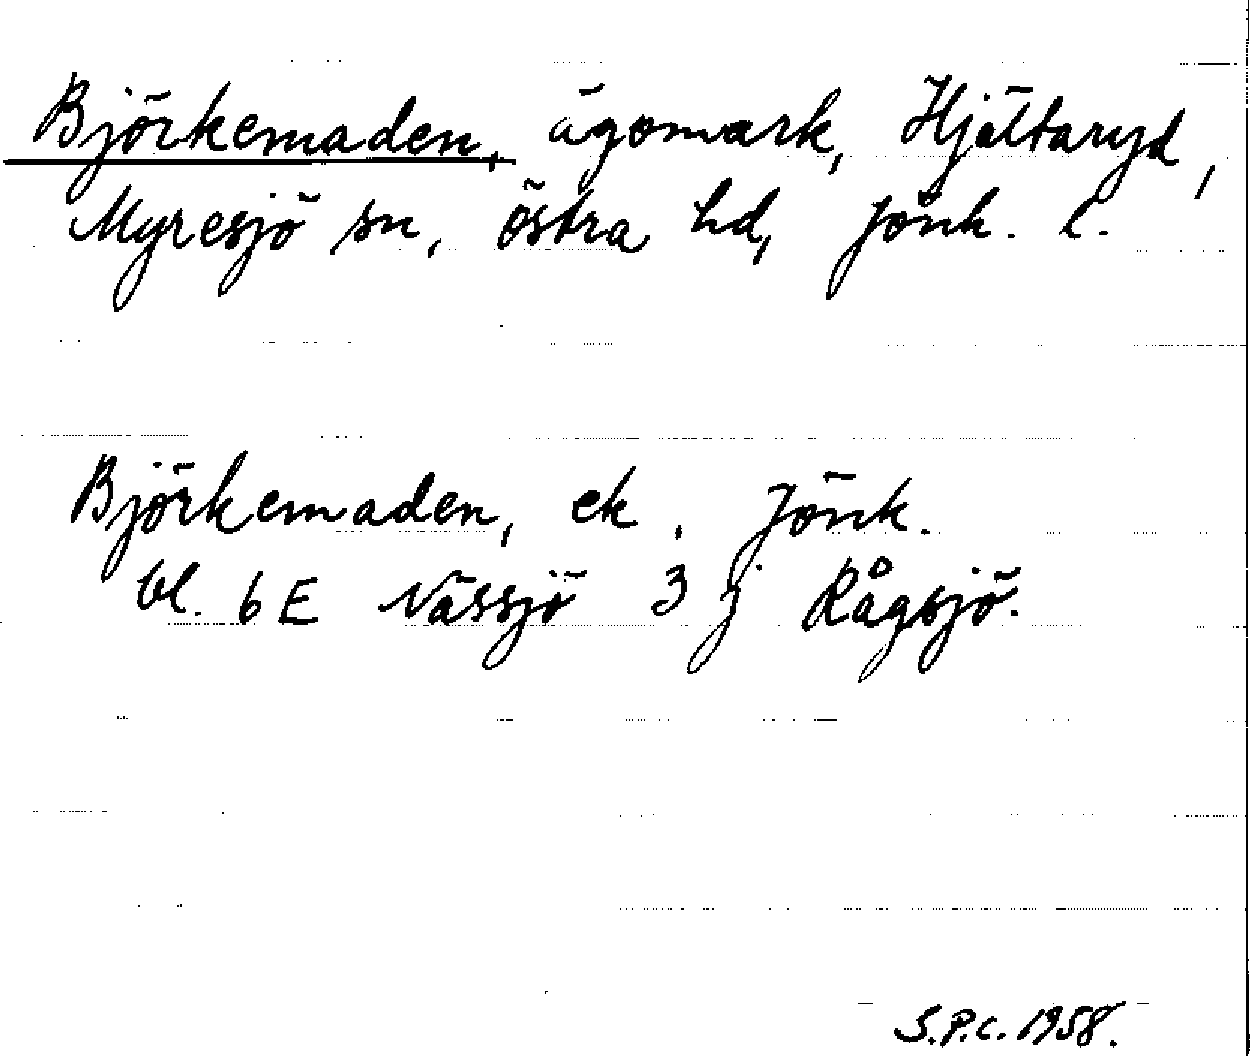 Björkemaden, ägomark, Hjältaryd,
Myresjö sn, östra hd, Jönk. l.
Björkemaden, ek. Jönk.
bl. 6E Nässjö 3 j Rågsjö.
S.P.C. 1958.